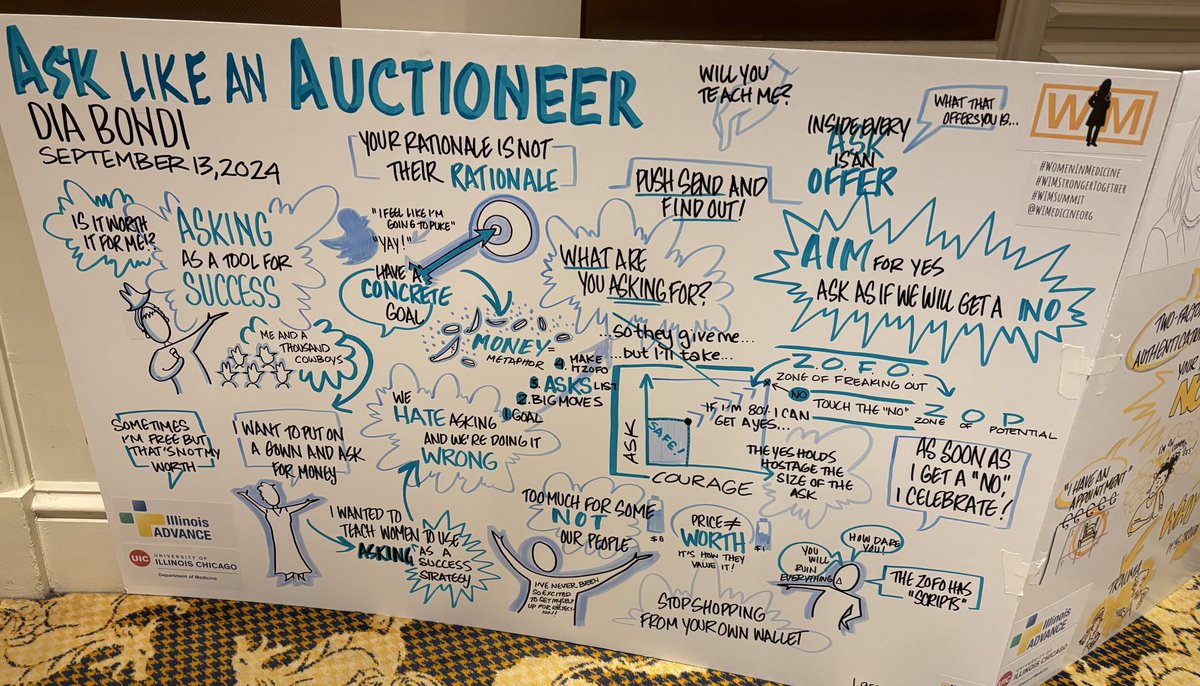 ASK LIKE AN AUCTIONEER
DIA BONDI
SEPTEMBER 13, 2024
YOUR RATIONALE IS NOT
THEIR RATIONALE
WILL YOU
TEACH ME?
INSIDE EVERY
ASK
IS AN
OFFER
WHAT THAT
OFFERS YOU IS...
WIM
#WOMENINMEDICINE
#WIMSTRONGERTOGETHER
#WIMSUMMIT
@WIMEDICINEORG
IS IT WORTH
IT FOR ME!?
ASKING
AS A TOOL FOR
SUCCESS
"I FEEL LIKE I'M
GOING TO PUKE"
"YAY!"
HAVE A
CONCRETE
GOAL
PUSH SEND AND
FIND OUT!
WHAT ARE
YOU ASKING FOR?
AIM FOR YES
ASK AS IF WE WILL GET A NO
ME AND A
THOUSAND
COWBOYS
MONEY=
METAPHOR
4. MAKE
IT ZOFO
3. ASKS LIST
2. BIG MOVES
1. GOAL
SO THEY GIVE ME...
...BUT I'LL TAKE...
Z.O.F.O.
ZONE OF FREAKING OUT
NO
TOUCH THE "NO"
Z O P
ZONE OF POTENTIAL
IF I'M 80% I CAN
GET A YES...
SAFE!
ASK
COURAGE
THE YES HOLDS
HOSTAGE THE
SIZE OF THE
ASK
AS SOON AS
I GET A "NO",
I CELEBRATE!
WE
HATE ASKING
AND WE'RE DOING IT
WRONG
SOMETIMES
I'M FREE BUT
THAT'S NOT MY
WORTH
I WANT TO PUT ON
A GOWN AND ASK
FOR MONEY
I WANTED TO
TEACH WOMEN TO USE
ASKING
AS A
SUCCESS
STRATEGY
TOO MUCH FOR SOME
NOT
OUR PEOPLE
I'VE NEVER BEEN
SO EXCITED
TO SET MYSELF
UP FOR REJECTION!
$8
PRICE ≠
WORTH
IT'S HOW THEY
VALUE IT!
$1
STOP SHOPPING
FROM YOUR OWN WALLET
YOU
WILL
RUIN
EVERYTHING
HOW DARE
YOU!
THE ZOFO HAS
"SCRIPTS"
Illinois
ADVANCE
UIC
UNIVERSITY OF
ILLINOIS CHICAGO
Department of Medicine
TWO-FACTOR
AUTHENTICATION
YOUR
NO
"I HAVE AN
APPOINTMENT"
TRAUMA
Illinois
ADVANCE
UIC
UNIVERSITY OF
ILLINOIS CHICAGO